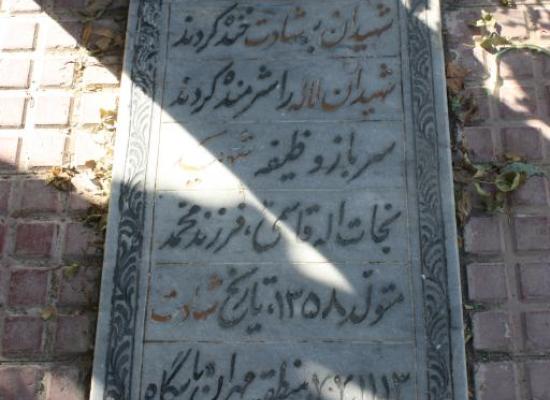 شهیدان بر شهادت خنده کردند
شهیدان لاله را شرمنده کردند
سرباز وظیفه شهید
نجات اله قاسمی، فرزند محمد
متولد ۱۳۵۸، تاریخ شهادت
منطقه مهران پاسگاه